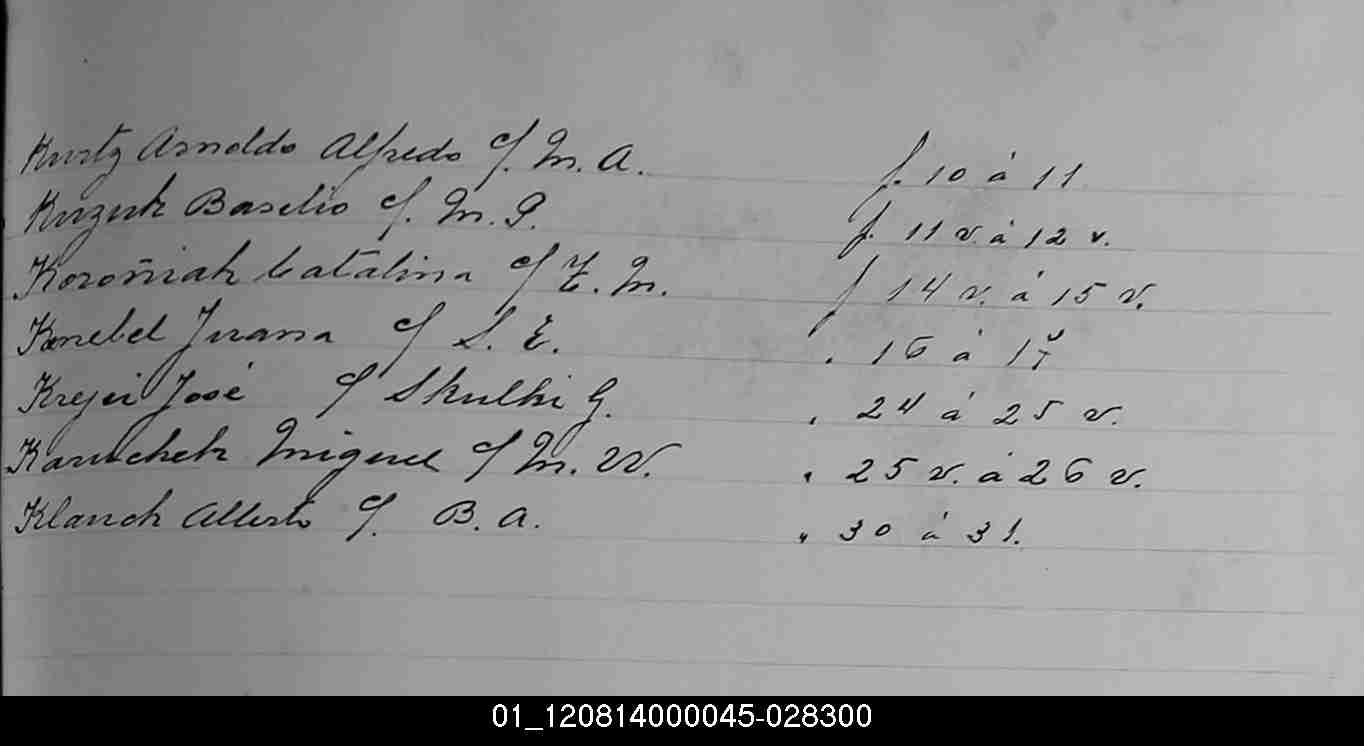 Kurtz Arnoldo Alfredo c/. M. A. f. 10 á 11
Kuzuk Basilio c/. M. P. f. 11 v. á 12 v.
Koroñiak Catalina c/ Z. M. f 14 v. á 15 v.
Knebel Juana c/ S. E. " 16 á 17
Krejci José c/ Skulki G. " 24 á 25 v.
Miguel c/ M. W. " 25 v. á 26 v.
Klauch Alberto c/. B. A. " 30 á 31.
01_120814000045-028300